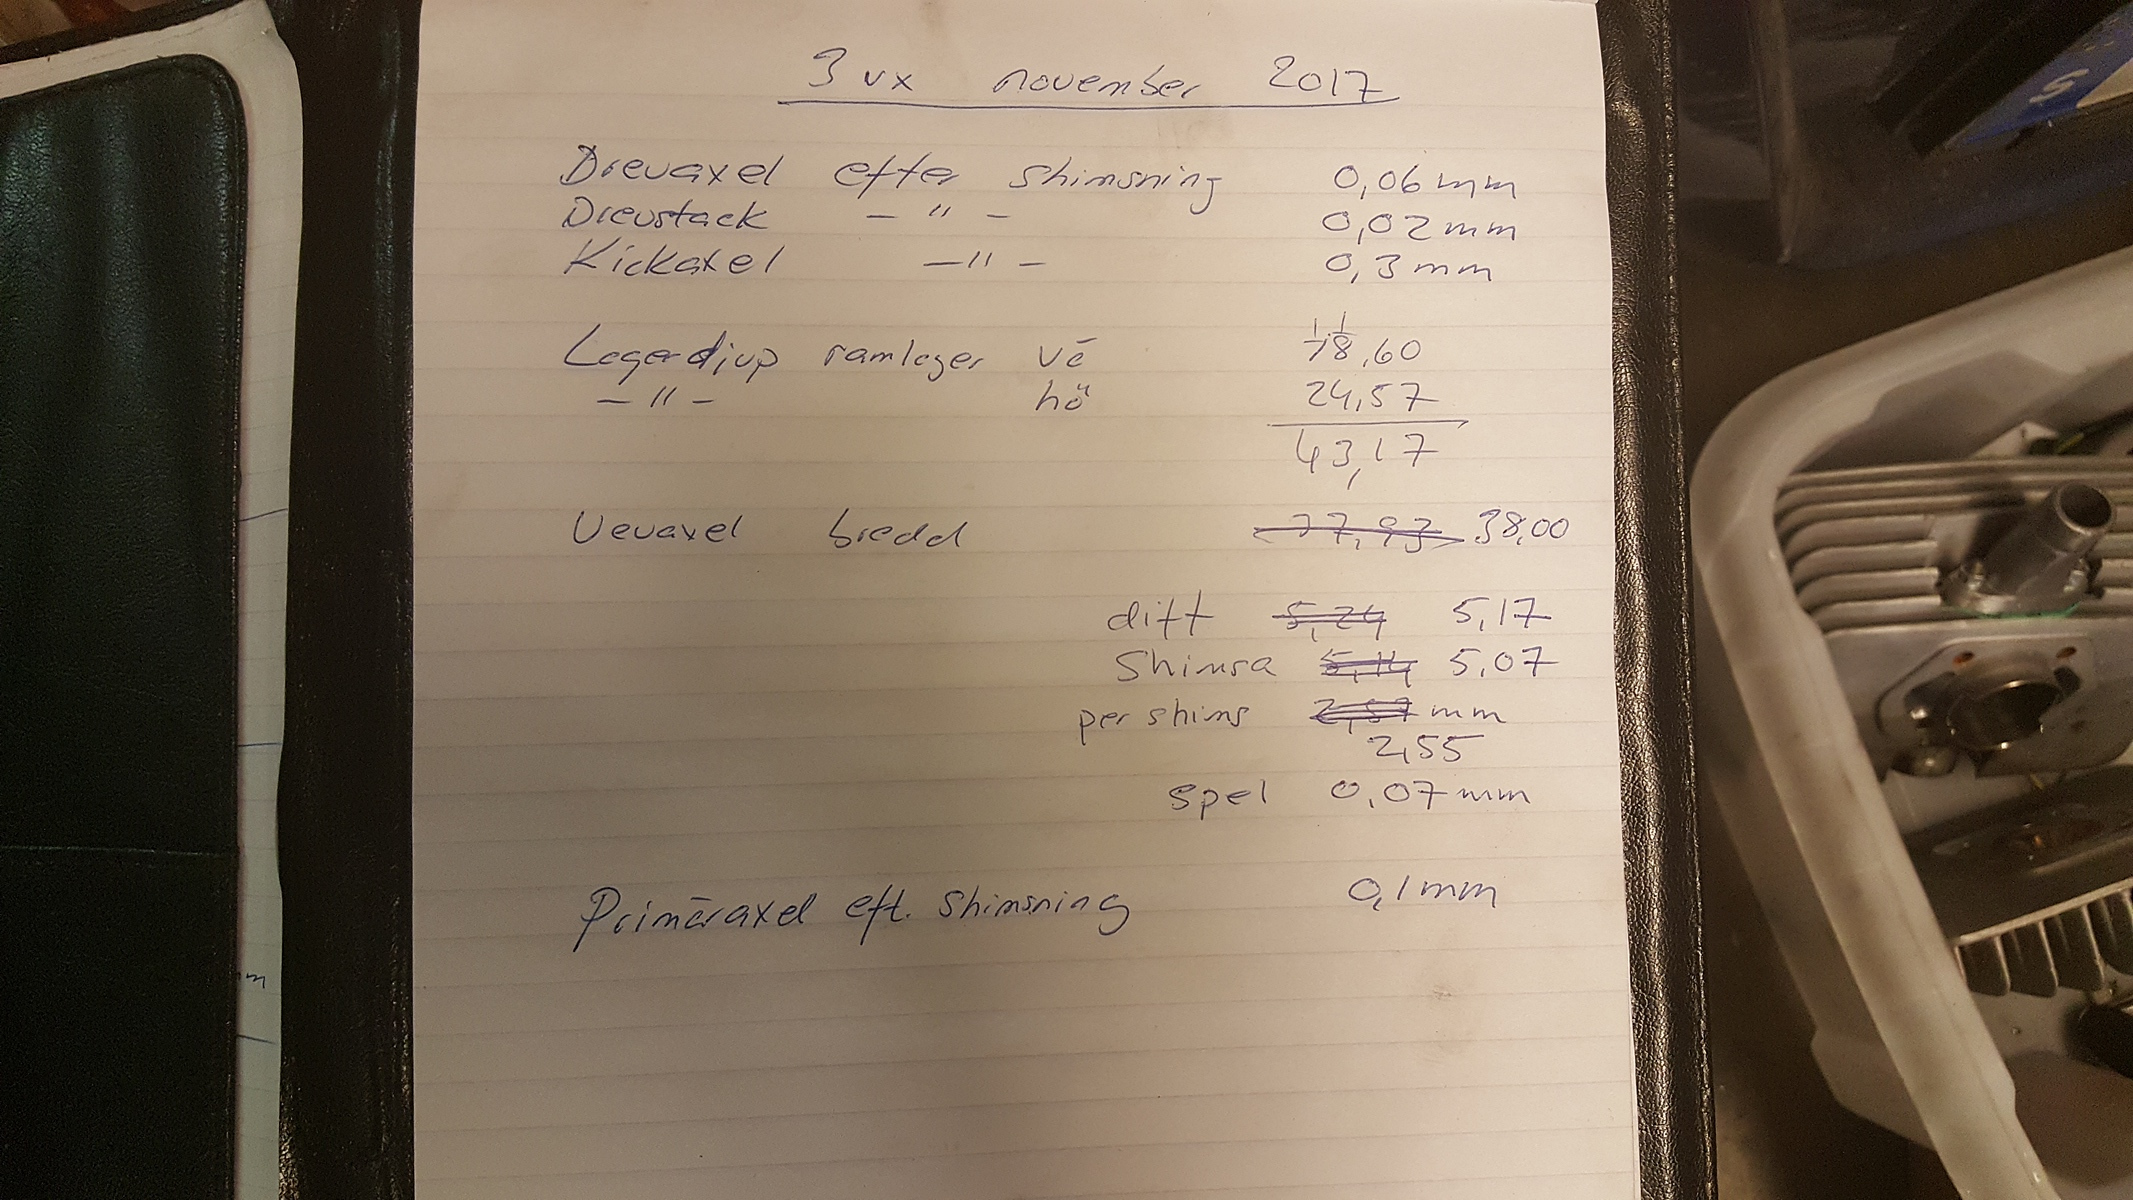 3 vx november 2017
Drevaxel efter shimsning 0,06 mm
Drevstack – " – 0,02 mm
Kickaxel – " – 0,3 mm
1 1
Lagerdjup ramlager vä 18,60
– " – hö 24,57
43,17
Vevaxel bredd 37,93 38,00
diff 5,24 5,17
Shimsa 5,14 5,07
per shims 2,57 mm
2,55
spel 0,07 mm
Primäraxel eft. shimsning 0,1 mm
m
S